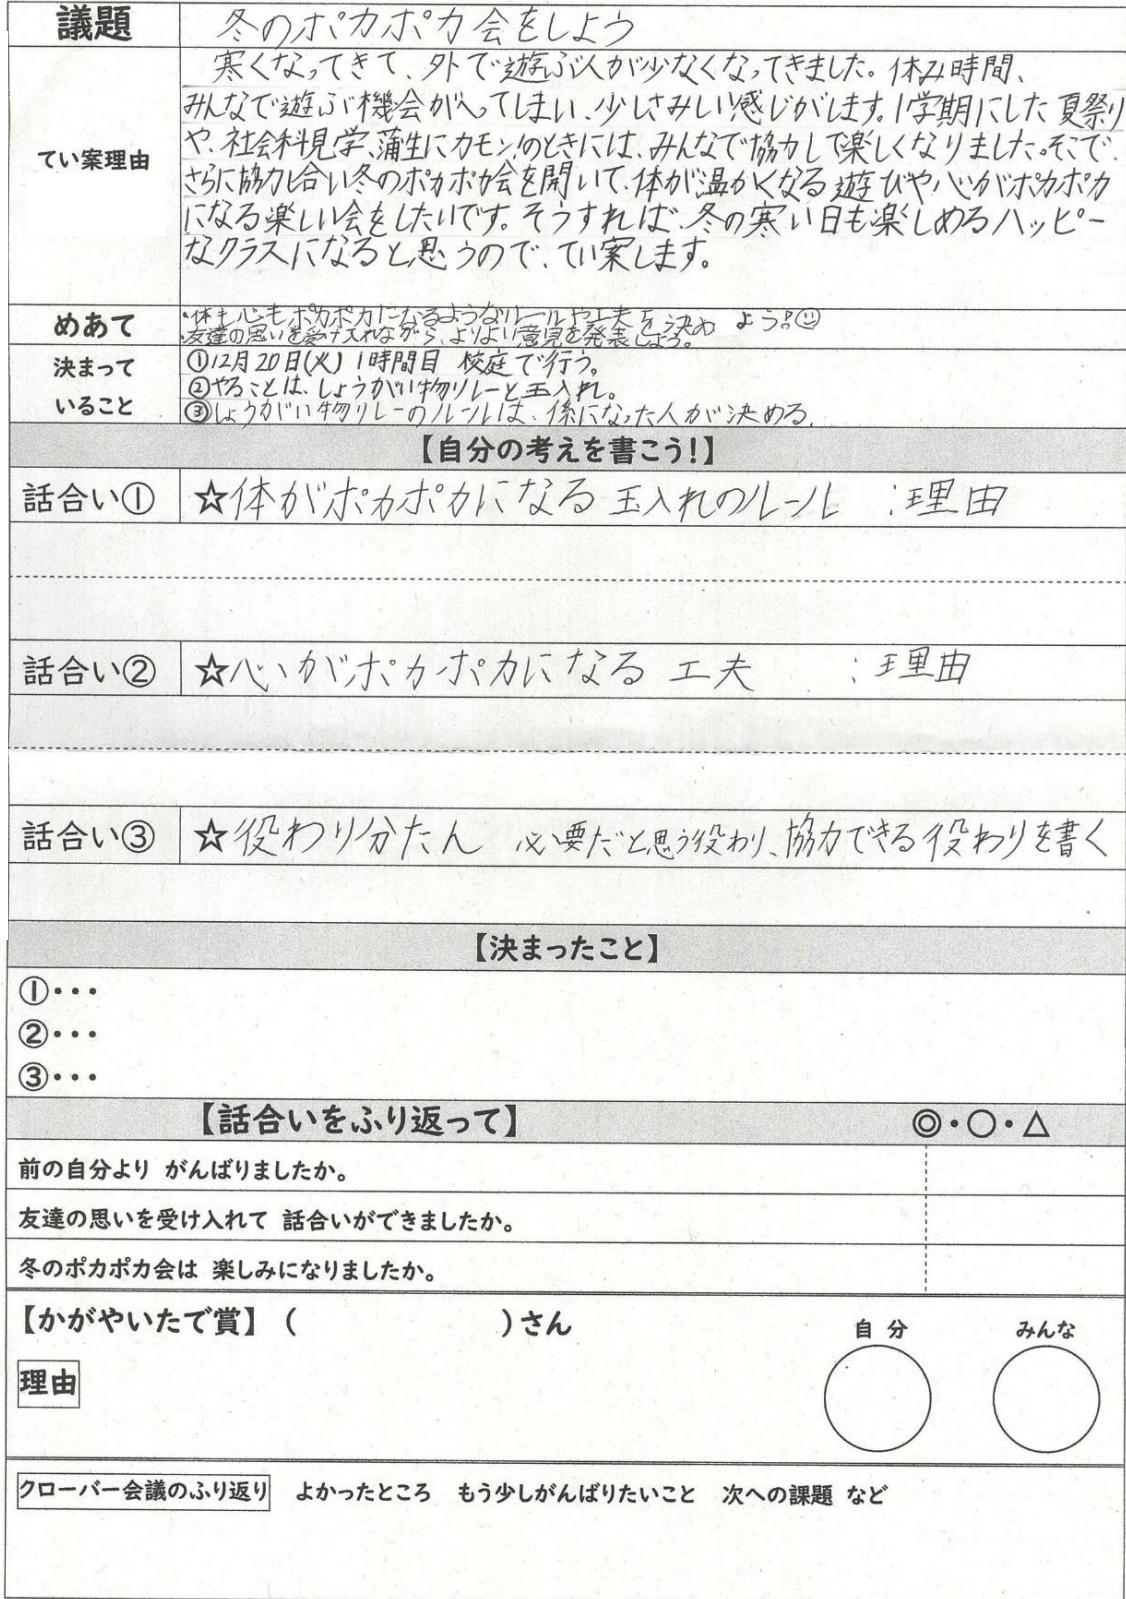 議題 冬のポカポカ会をしよう
てい案理由
寒くなってきて、外で遊ぶ人が少なくなってきました。休み時間、
みんなで遊ぶ機会がへってしまい、少しさみしい感じがします。1学期にした夏祭り
や、社会科見学、蒲生にカモン!のときには、みんなで協力して楽しくなりました。そこで、
さらに協力し合い冬のポカポカ会を開いて、体が温かくなる遊びや心がポカポカ
になる楽しい会をしたいです。そうすれば、冬の寒い日も楽しめるハッピー
なクラスになると思うので、てい案します。
めあて
・体も心もポカポカになるようなルールや工夫を決めよう!
・友達の思いを受け入れながら、よりよい意見を発表しよう。
決まって
いること
①12月20日(火)1時間目 校庭で行う。
②やることは、しょうがい物リレーと玉入れ。
③しょうがい物リレーのルールは、係になった人が決める。
【自分の考えを書こう!】
話合い① ☆体がポカポカになる玉入れのルール :理由
話合い② ☆心がポカポカになる 工夫 :理由
話合い③ ☆役わり分たん 必要だと思う役わり、協力できる役わりを書く
【決まったこと】
①・・・
②・・・
③・・・
【話合いをふり返って】 ◎・○・△
前の自分より がんばりましたか。
友達の思いを受け入れて 話合いができましたか。
冬のポカポカ会は 楽しみになりましたか。
【かがやいたで賞】 ( )さん 自分 みんな
理由
クローバー会議のふり返り よかったところ もう少しがんばりたいこと 次への課題 など